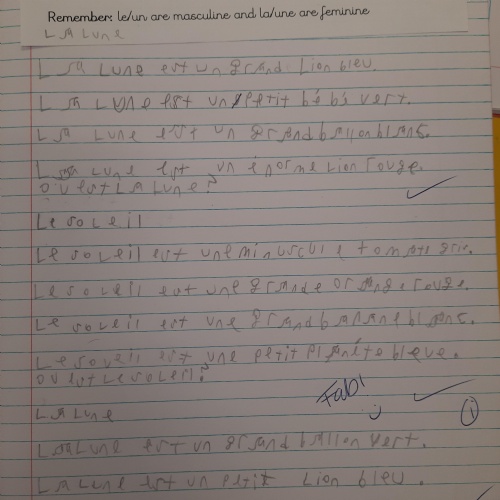 Remember: le/un are masculine and la/une are feminine
La lune
La lune est un grand lion bleu.
La lune est un petit bébé vert.
La lune est un grand ballon blanc.
La lune est un énorme lion rouge.
ou est La lune?
Le soleil
Le soleil est une minuscule tomate gris.
Le soleil est une grande orange rouge.
Le soleil est une grand banane blanc.
Le soleil est une petit planète bleue.
ou est Le soleil?
Fab!
La lune
La lune est un grand ballon vert.
La lune est un petit lion bleu.